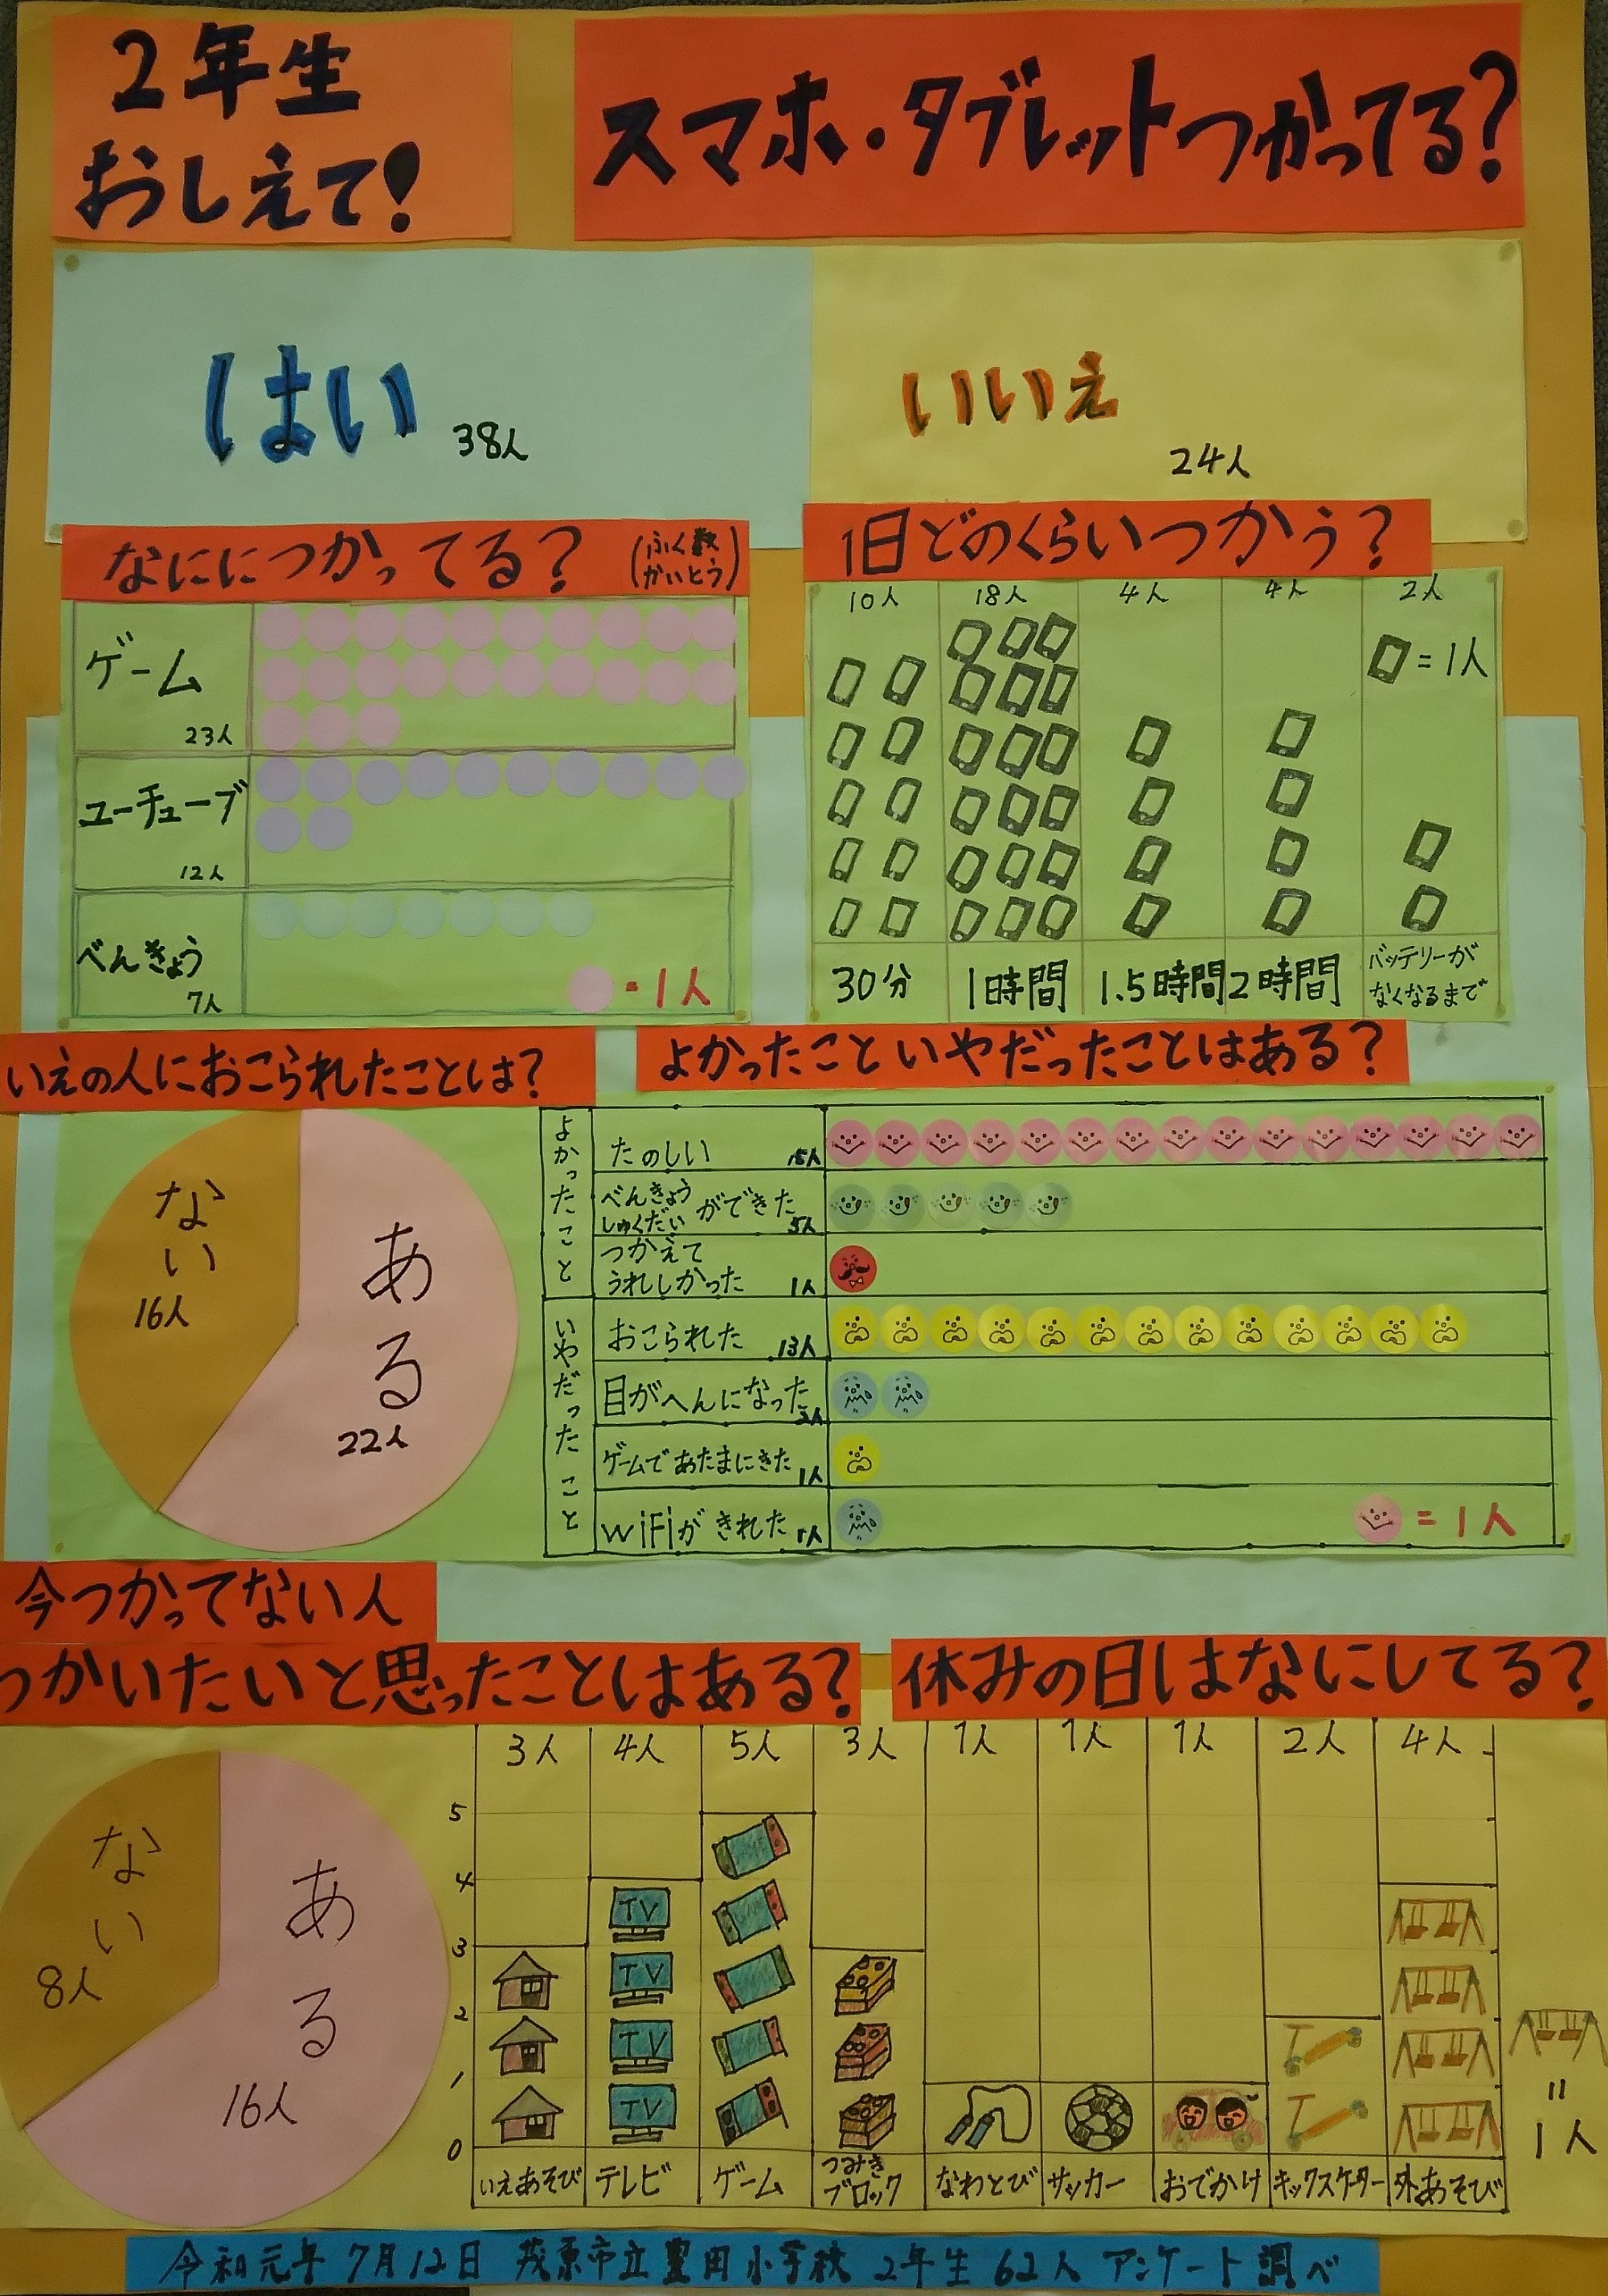 2年生
おしえて!
スマホ・タブレットつかってる?
はい 38人
いいえ
24人
なににつかってる?
(ふく数
かいとう)
ゲーム
23人
ユーチューブ
12人
べんきょう
7人
=1人
1日どのくらいつかう?
10人 18人 4人 4人 2人
=1人
30分 1時間 1.5時間 2時間 バッテリーが
なくなるまで
いえの人におこられたことは?
ない
16人
ある
22人
よかったこといやだったことはある?
よかったこと
たのしい 15人
べんきょう
しゅくだい ができた 5人
つかえて
うれししかった 1人
いやだったこと
おこられた 13人
目がへんになった 2人
ゲームであたまにきた 1人
WiFiがきれた 1人
=1人
今つかってない人
つかいたいと思ったことはある?
ない
8人
ある
16人
休みの日はなにしてる?
3人 4人 5人 3人 1人 1人 1人 2人 4人
5
4
3
2
1
0
TV
TV
TV
TV
いえあそび テレビ ゲーム つみき
ブロック なわとび サッカー おでかけ キックスケーター 外あそび
=1人
令和元年 7月12日 茂原市立豊田小学校 2年生 62人 アンケート調べ